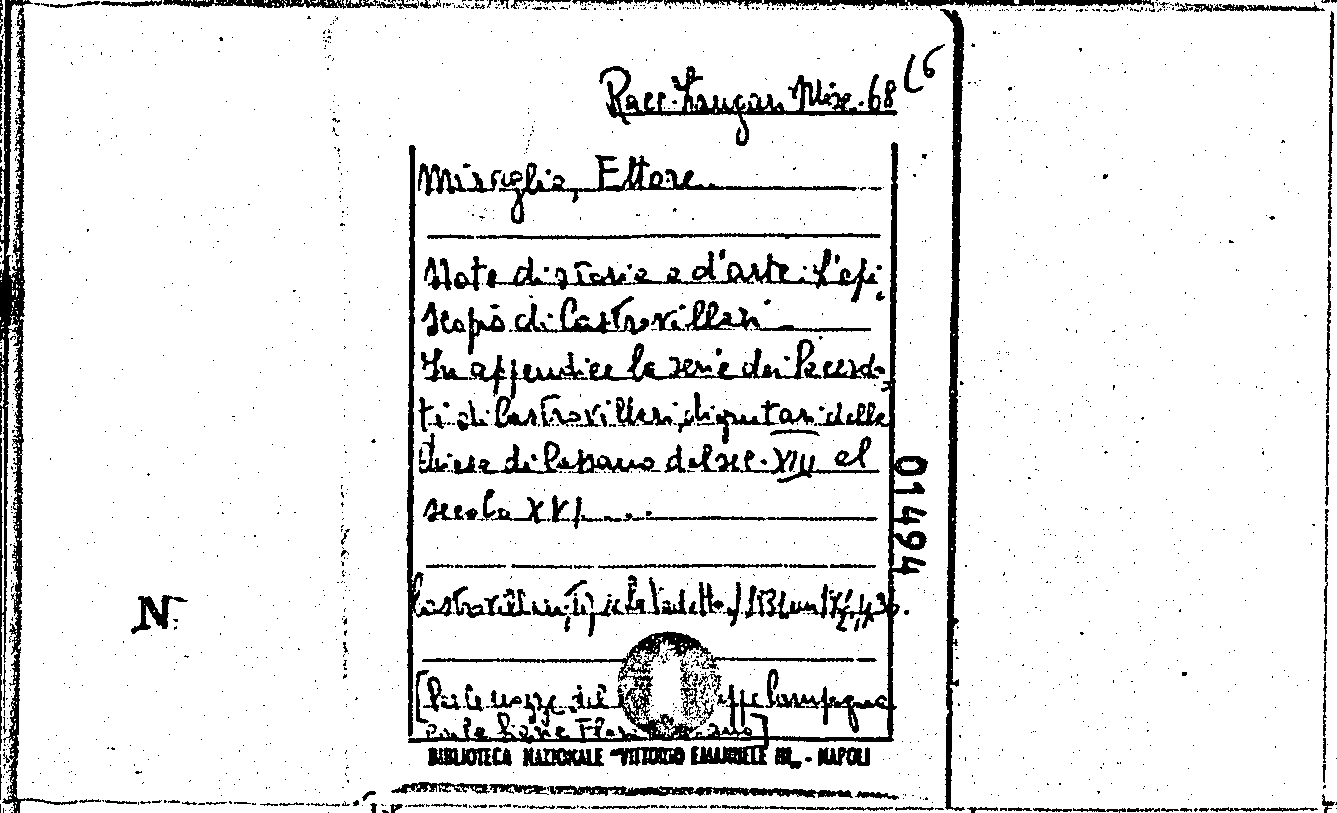 Racc. Zangari Misc. 68 (6
Miraglia, Ettore.
Note di storia e d'arte. L'epi-
scopio di Castrovillari.
In appendice la serie dei Sacerdo-
ti di Castrovillari, dignitari della
Chiesa di Cassano dal sec. XIII al
secolo XVI....
01494
Castrovillari, Tip.
N
[Per le nozze del Campagna
con la
BIBLIOTECA NAZIONALE "VITTORIO EMANUELE III" - NAPOLI